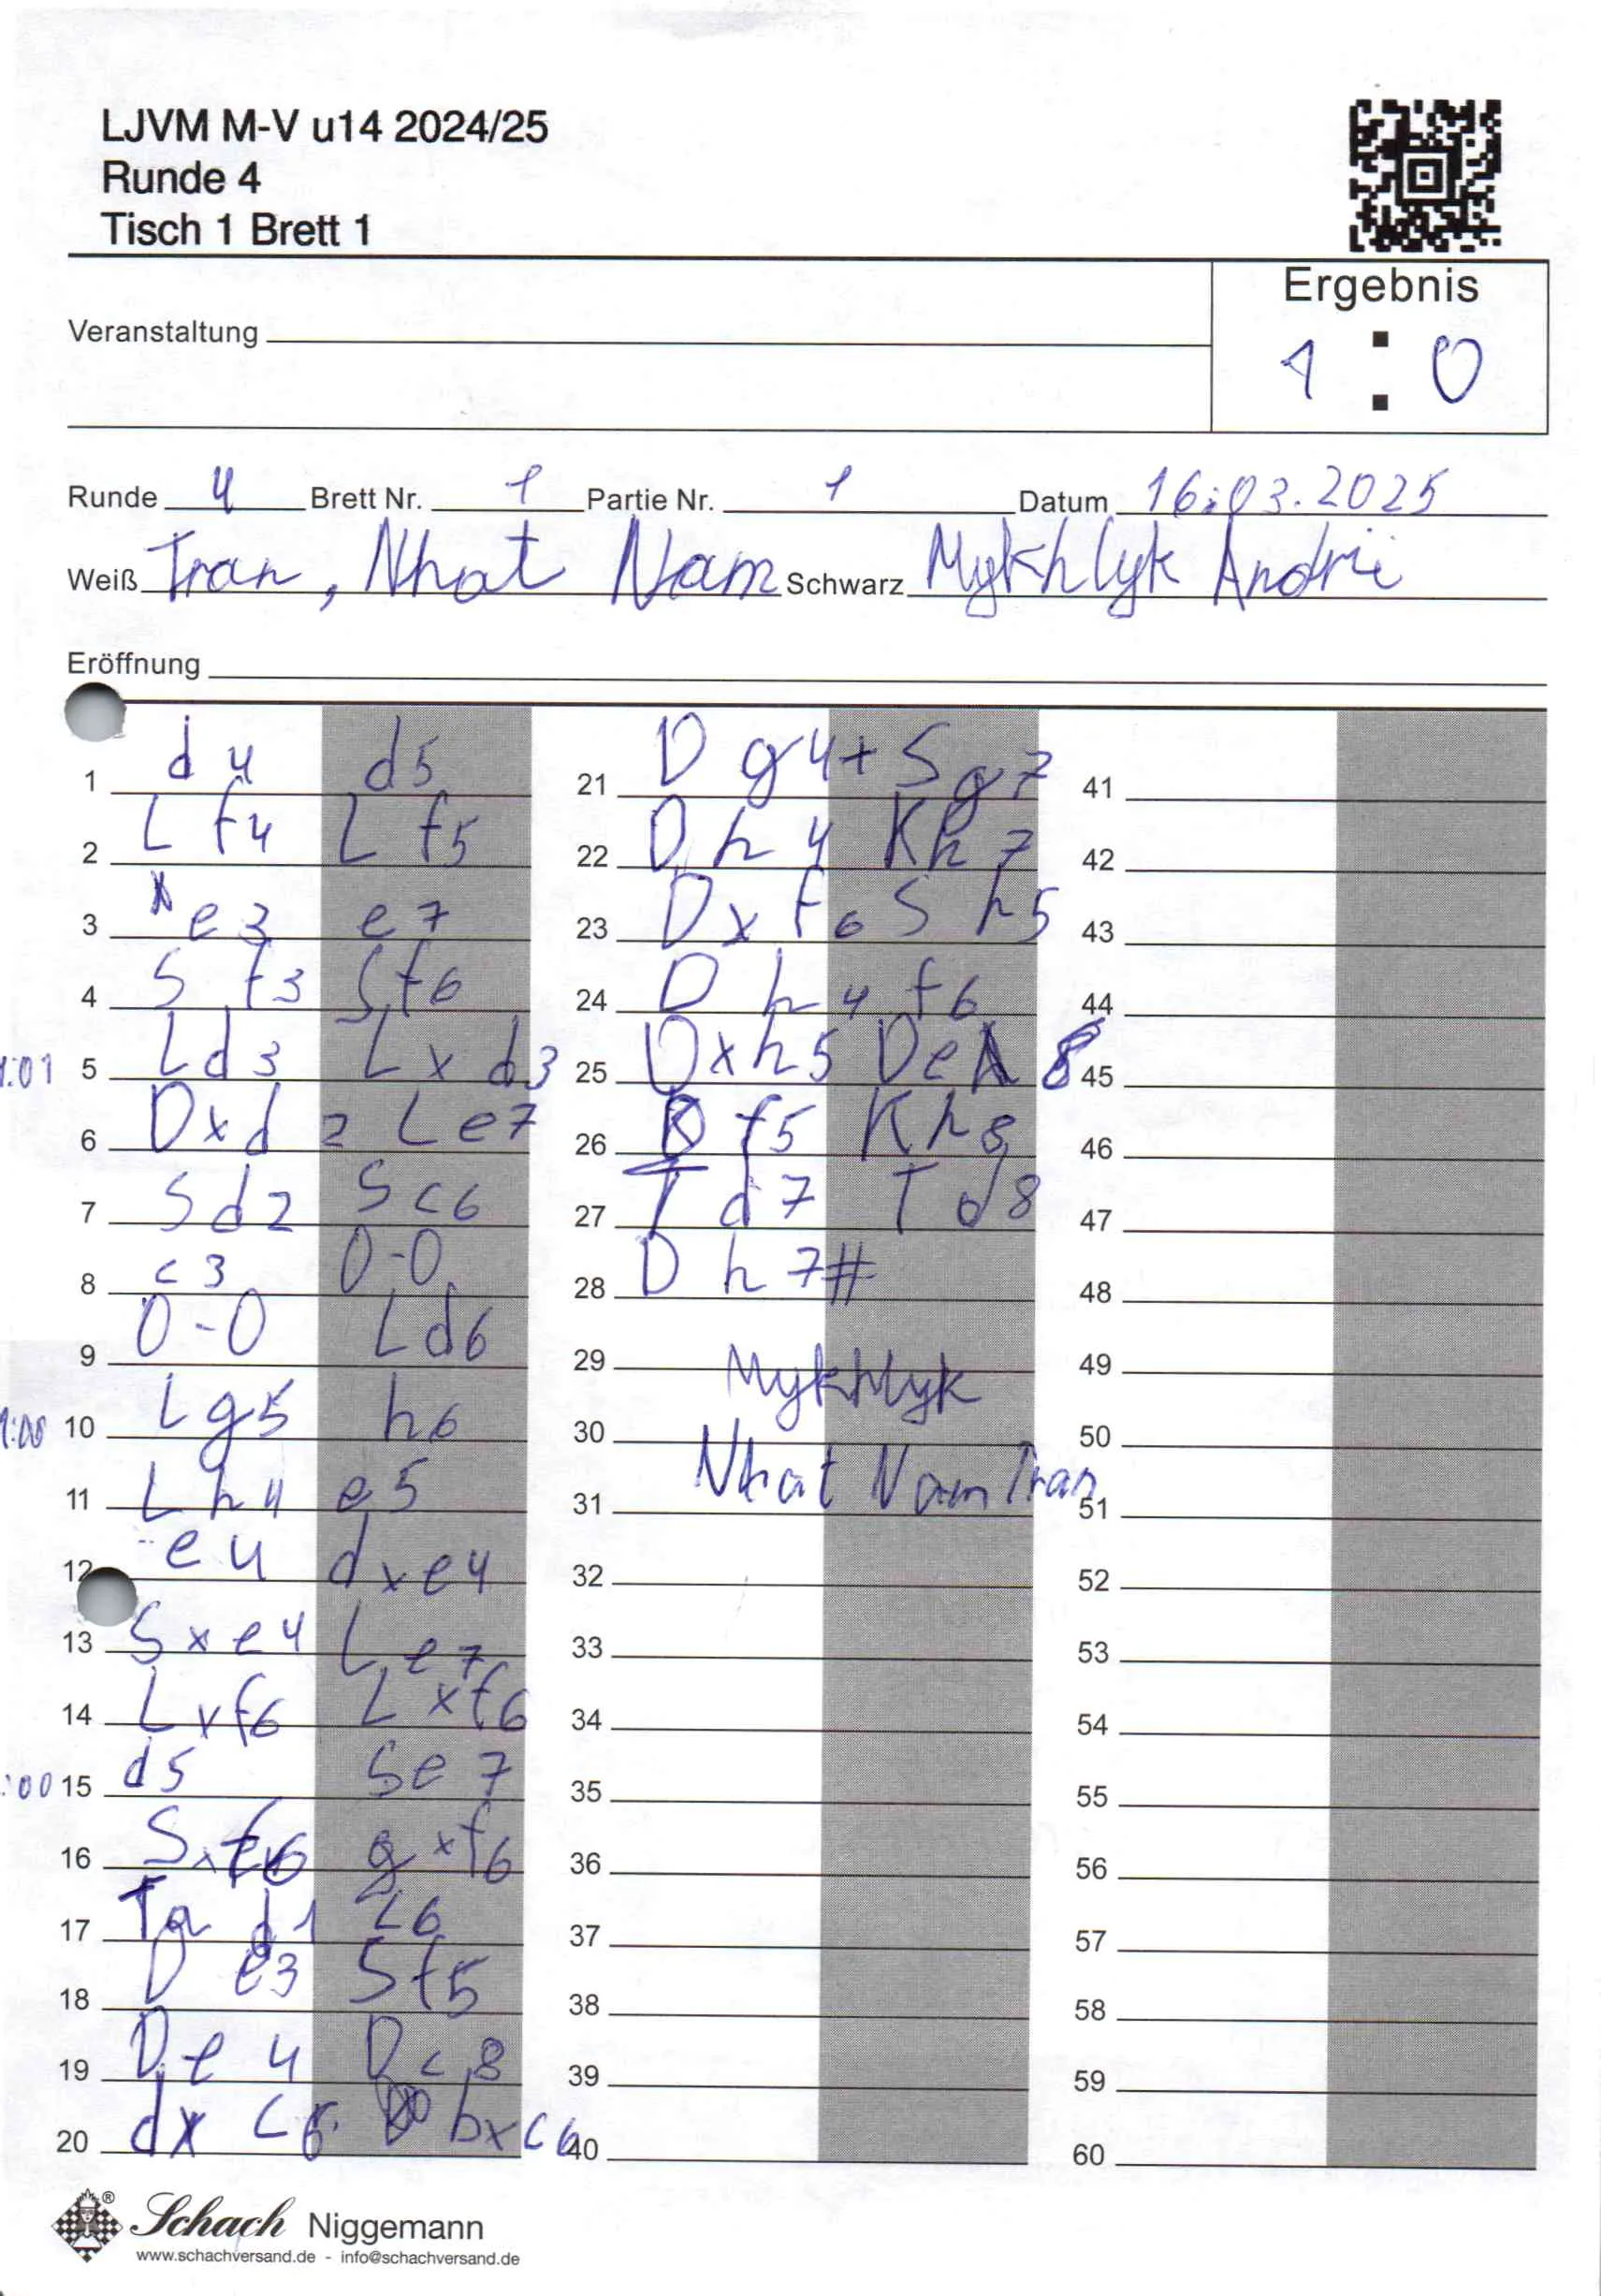 LJVM M-V u14 2024/25
Runde 4
Tisch 1 Brett 1
Ergebnis
1 : 0
Veranstaltung
Runde 4 Brett Nr. 1 Partie Nr. 1 Datum 16.03.2025
Weiß Tran, Nhat Nam Schwarz Mykhlyk Andrii
Eröffnung
1 d4 d5
2 Lf4 Lf5
3 e3 e7
4 Sf3 Sf6
1:01 5 Ld3 Lxd3
6 Dxd2 Le7
7 Sd2 Sc6
8 c3 0-0
9 0-0 Ld6
10 Lg5 h6
11 Lh4 e5
12 e4 dxe4
13 Sxe4 Le7
14 Lxf6 Lxf6
:00 15 d5 Se7
16 Sxf6 gxf6
17 Tad1 c6
18 De3 Sf5
19 De4 Dc8
20 dxc6 bxc6
21 Dg4+ Sg7
22 Dh4 Kh7
23 Dxf6 Sh5
24 Dh4 f6
25 Dxh5 De8
26 Df5 Kh8
27 Td7 Td8
28 Dh7#
29 Mykhlyk
30
31 Nhat Nam Tran
32
33
34
35
36
37
38
39
40
41
42
43
44
45
46
47
48
49
50
51
52
53
54
55
56
57
58
59
60
Schach Niggemann
www.schachversand.de - info@schachversand.de